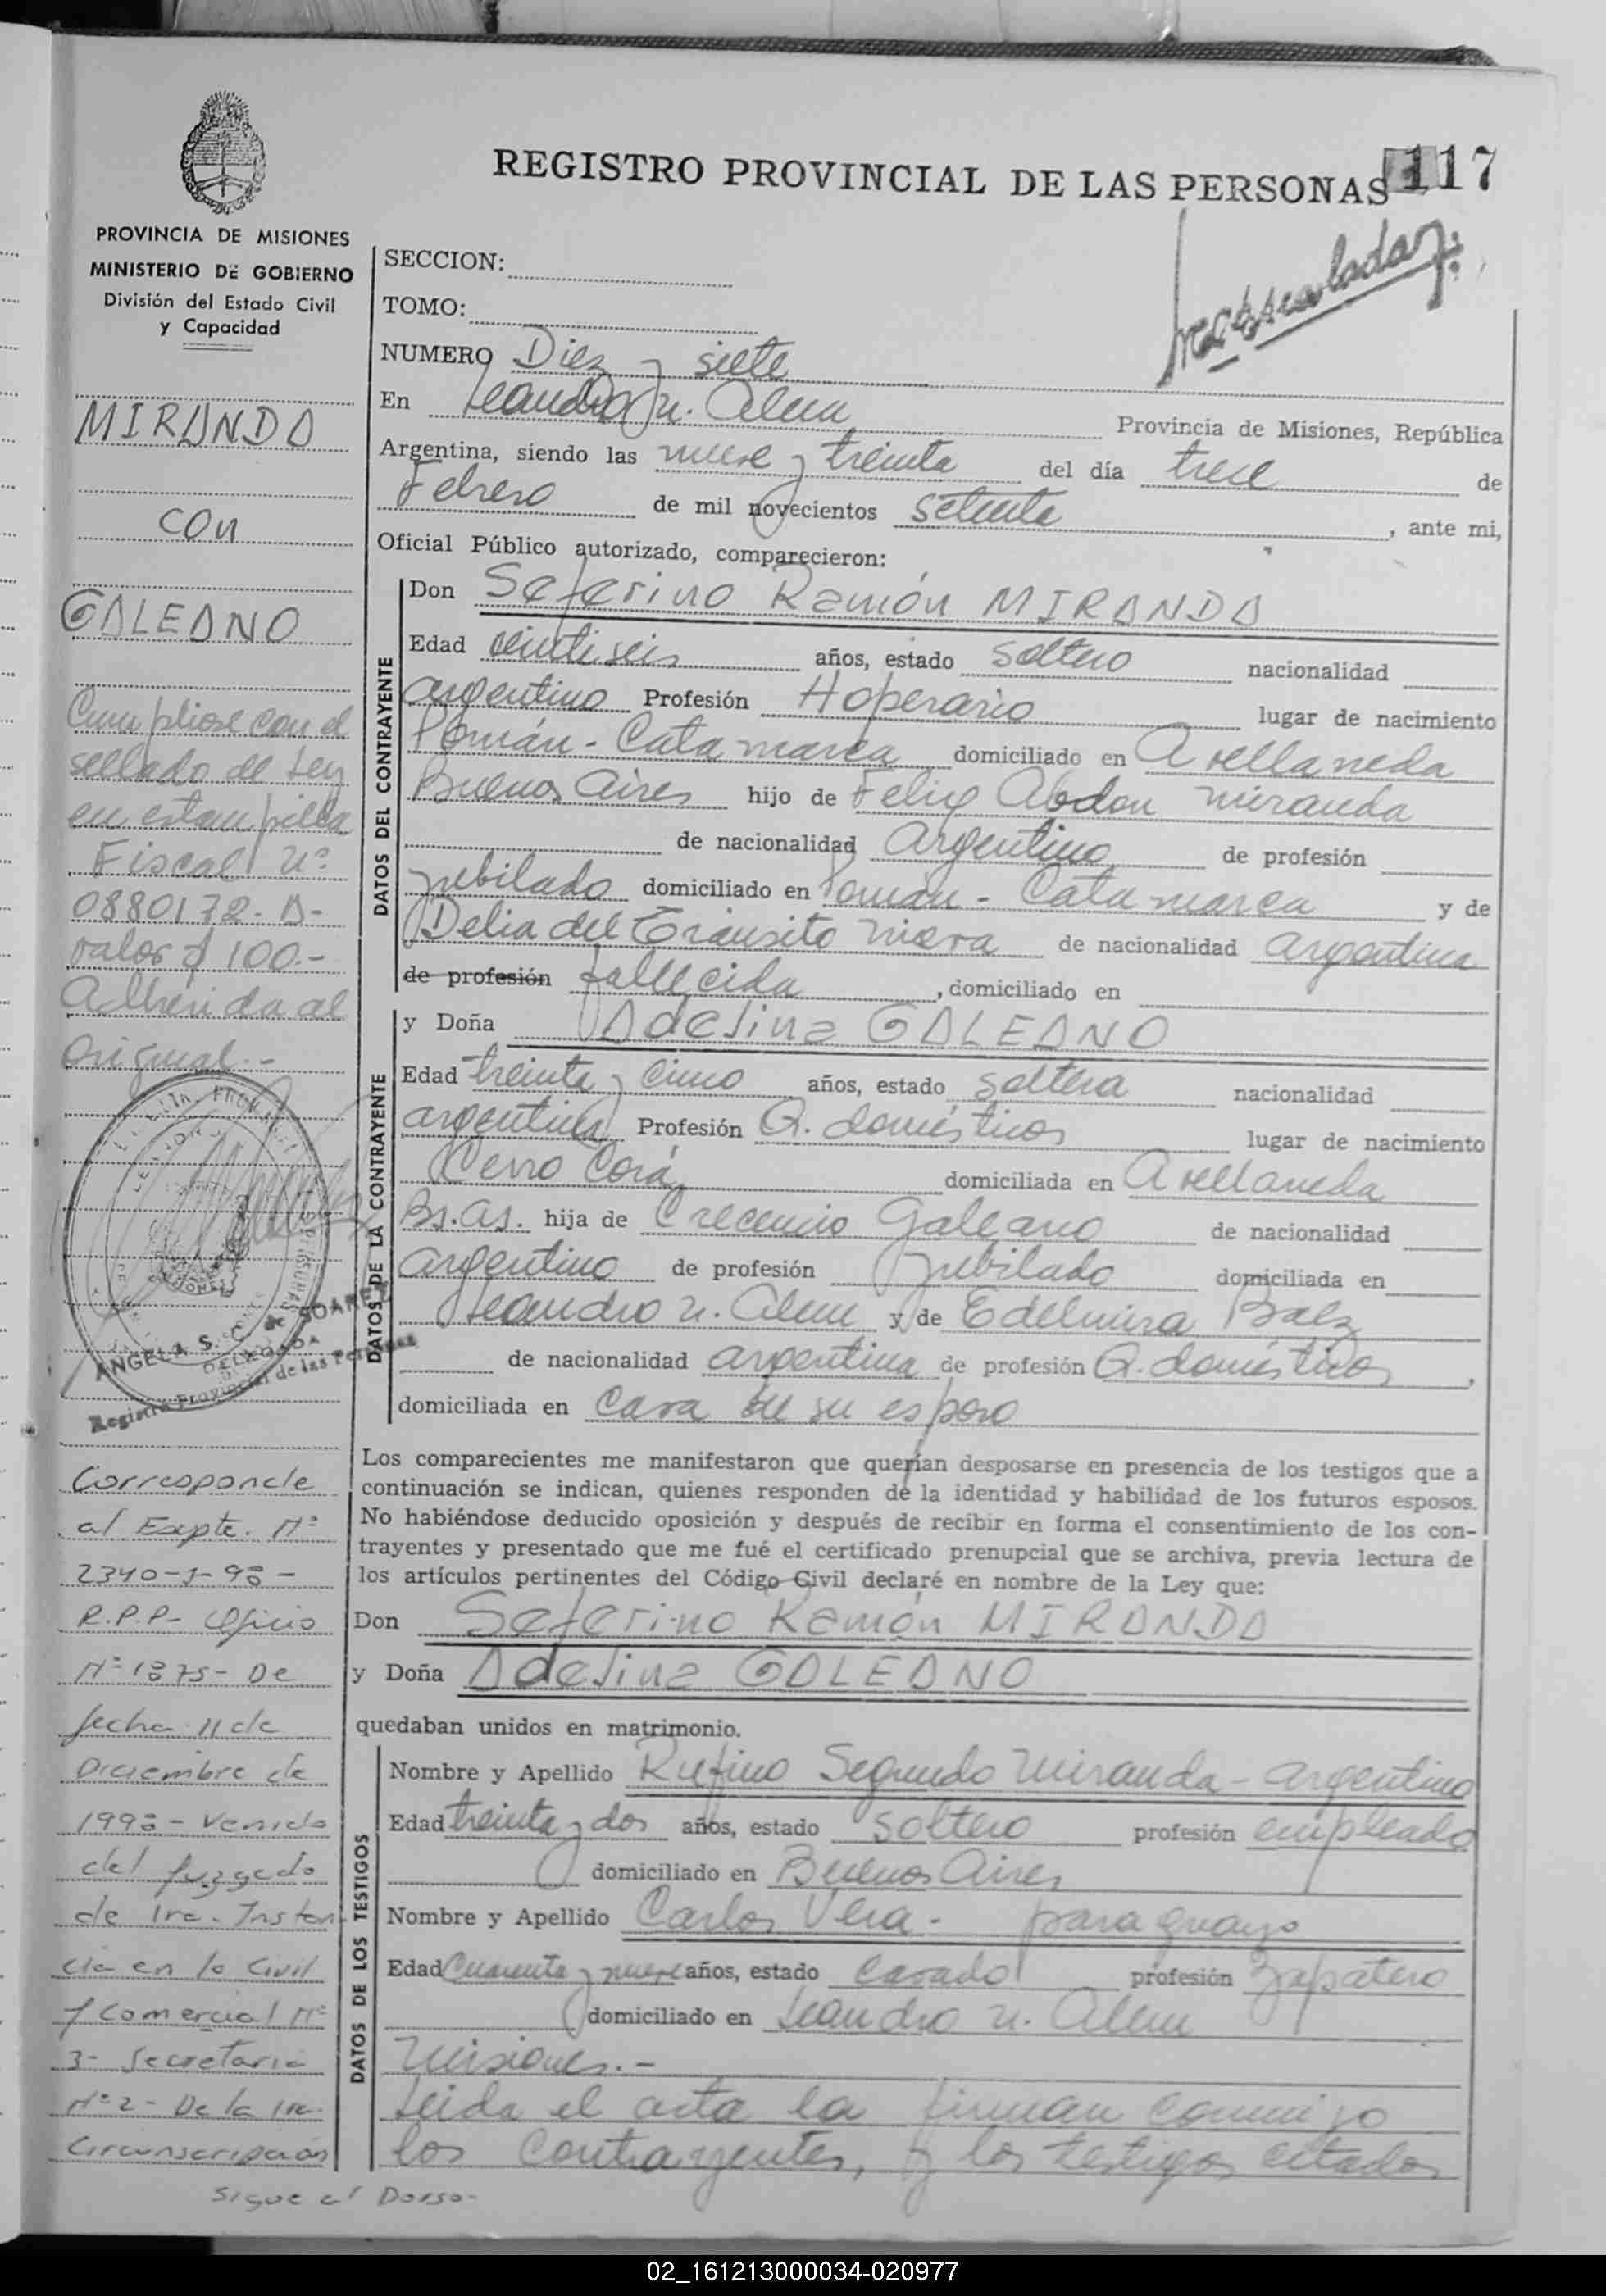 REGISTRO PROVINCIAL DE LAS PERSONAS 117
PROVINCIA DE MISIONES
MINISTERIO DE GOBIERNO
División del Estado Civil
y Capacidad
MIRANDA
con
GALEANO
Cumpliose con el
sellado de Ley
en estampilla
Fiscal nº
0880172-A-
valor $ 100.-
Adherida al
Original.-
ANGELA S. C. de SOAREZ
DELEGADA
Registro Provincial de las Personas
Corresponde
al Expte. Nº
R.P.P- Oficio
De
fecha 11 de
Diciembre de
Venido
del Juzgado
de 1ra. Instan
cia en lo Civil
y Comercial Nº
3- Secretaria
Nº 2- De la 1ra.
Circunscripción
Sigue al Dorso-
SECCION:
TOMO:
NUMERO Diez y siete
En Leandro N. Alem Provincia de Misiones, República
Argentina, siendo las nueve y treinta del día trece de
Febrero de mil novecientos setenta, ante mi,
Oficial Público autorizado, comparecieron:
DATOS DEL CONTRAYENTE
Don Seferino Ramón MIRANDA
Edad veintiseis años, estado soltero nacionalidad
argentino Profesión Hoperario lugar de nacimiento
Pomán - Catamarca domiciliado en Avellaneda
Buenos Aires hijo de Felix Abdon Miranda
de nacionalidad Argentino de profesión
jubilado domiciliado en Pomán - Catamarca y de
Delia del Tránsito de nacionalidad argentina
de profesión fallecida, domiciliado en
DATOS DE LA CONTRAYENTE
y Doña Adelina GALEANO
Edad treinta y cinco años, estado soltera nacionalidad
argentina Profesión Q. domésticos lugar de nacimiento
Cerro Corá domiciliada en Avellaneda
Bs. As. hija de Crecencio Galeano de nacionalidad
argentino de profesión jubilado domiciliada en
Leandro N. Alem y de Edelmira Baez
de nacionalidad argentina de profesión Q. domésticos,
domiciliada en casa de su esposo
Los comparecientes me manifestaron que querían desposarse en presencia de los testigos que a
continuación se indican, quienes responden de la identidad y habilidad de los futuros esposos.
No habiéndose deducido oposición y después de recibir en forma el consentimiento de los con-
trayentes y presentado que me fué el certificado prenupcial que se archiva, previa lectura de
los artículos pertinentes del Código Civil declaré en nombre de la Ley que:
Don Seferino Ramón MIRANDA
y Doña Adelina GALEANO
quedaban unidos en matrimonio.
DATOS DE LOS TESTIGOS
Nombre y Apellido Rufino Segundo Miranda - argentino
Edad treinta y dos años, estado soltero profesión empleado
domiciliado en Buenos Aires
Nombre y Apellido Carlos Vera - paraguayo
Edad Cuarenta y nueve años, estado casado profesión zapatero
domiciliado en Leandro N. Alem
Misiones.-
Leida el acta la firman conmigo
los contrayentes, y los testigos citados
02_161213000034-020977